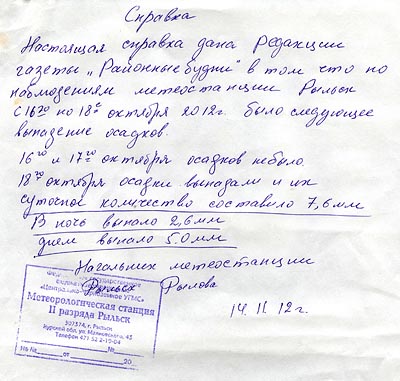 Справка
Настоящая справка дана Редакции
газеты „Районные будни" в том что по
наблюдениям метеостанции Рыльск
с 16го по 18е октября 2012г. было следующее
выпадение осадков.
16го и 17го октября осадков небыло
18го октября осадки выпадали и их
суточное количество составило 7,6мм
В ночь выпало 2,6мм
днем выпало 5.0мм
Начальник метеостанции
Рыльск Рылова
14.11.12г.
«Центрально-Черноземное УГМС»
Метеорологическая станция
II разряда Рыльск
307374, г. Рыльск
Курской обл. ул. Маяковского, 45
Телефон 471 52 2-19-04
На № от № 20